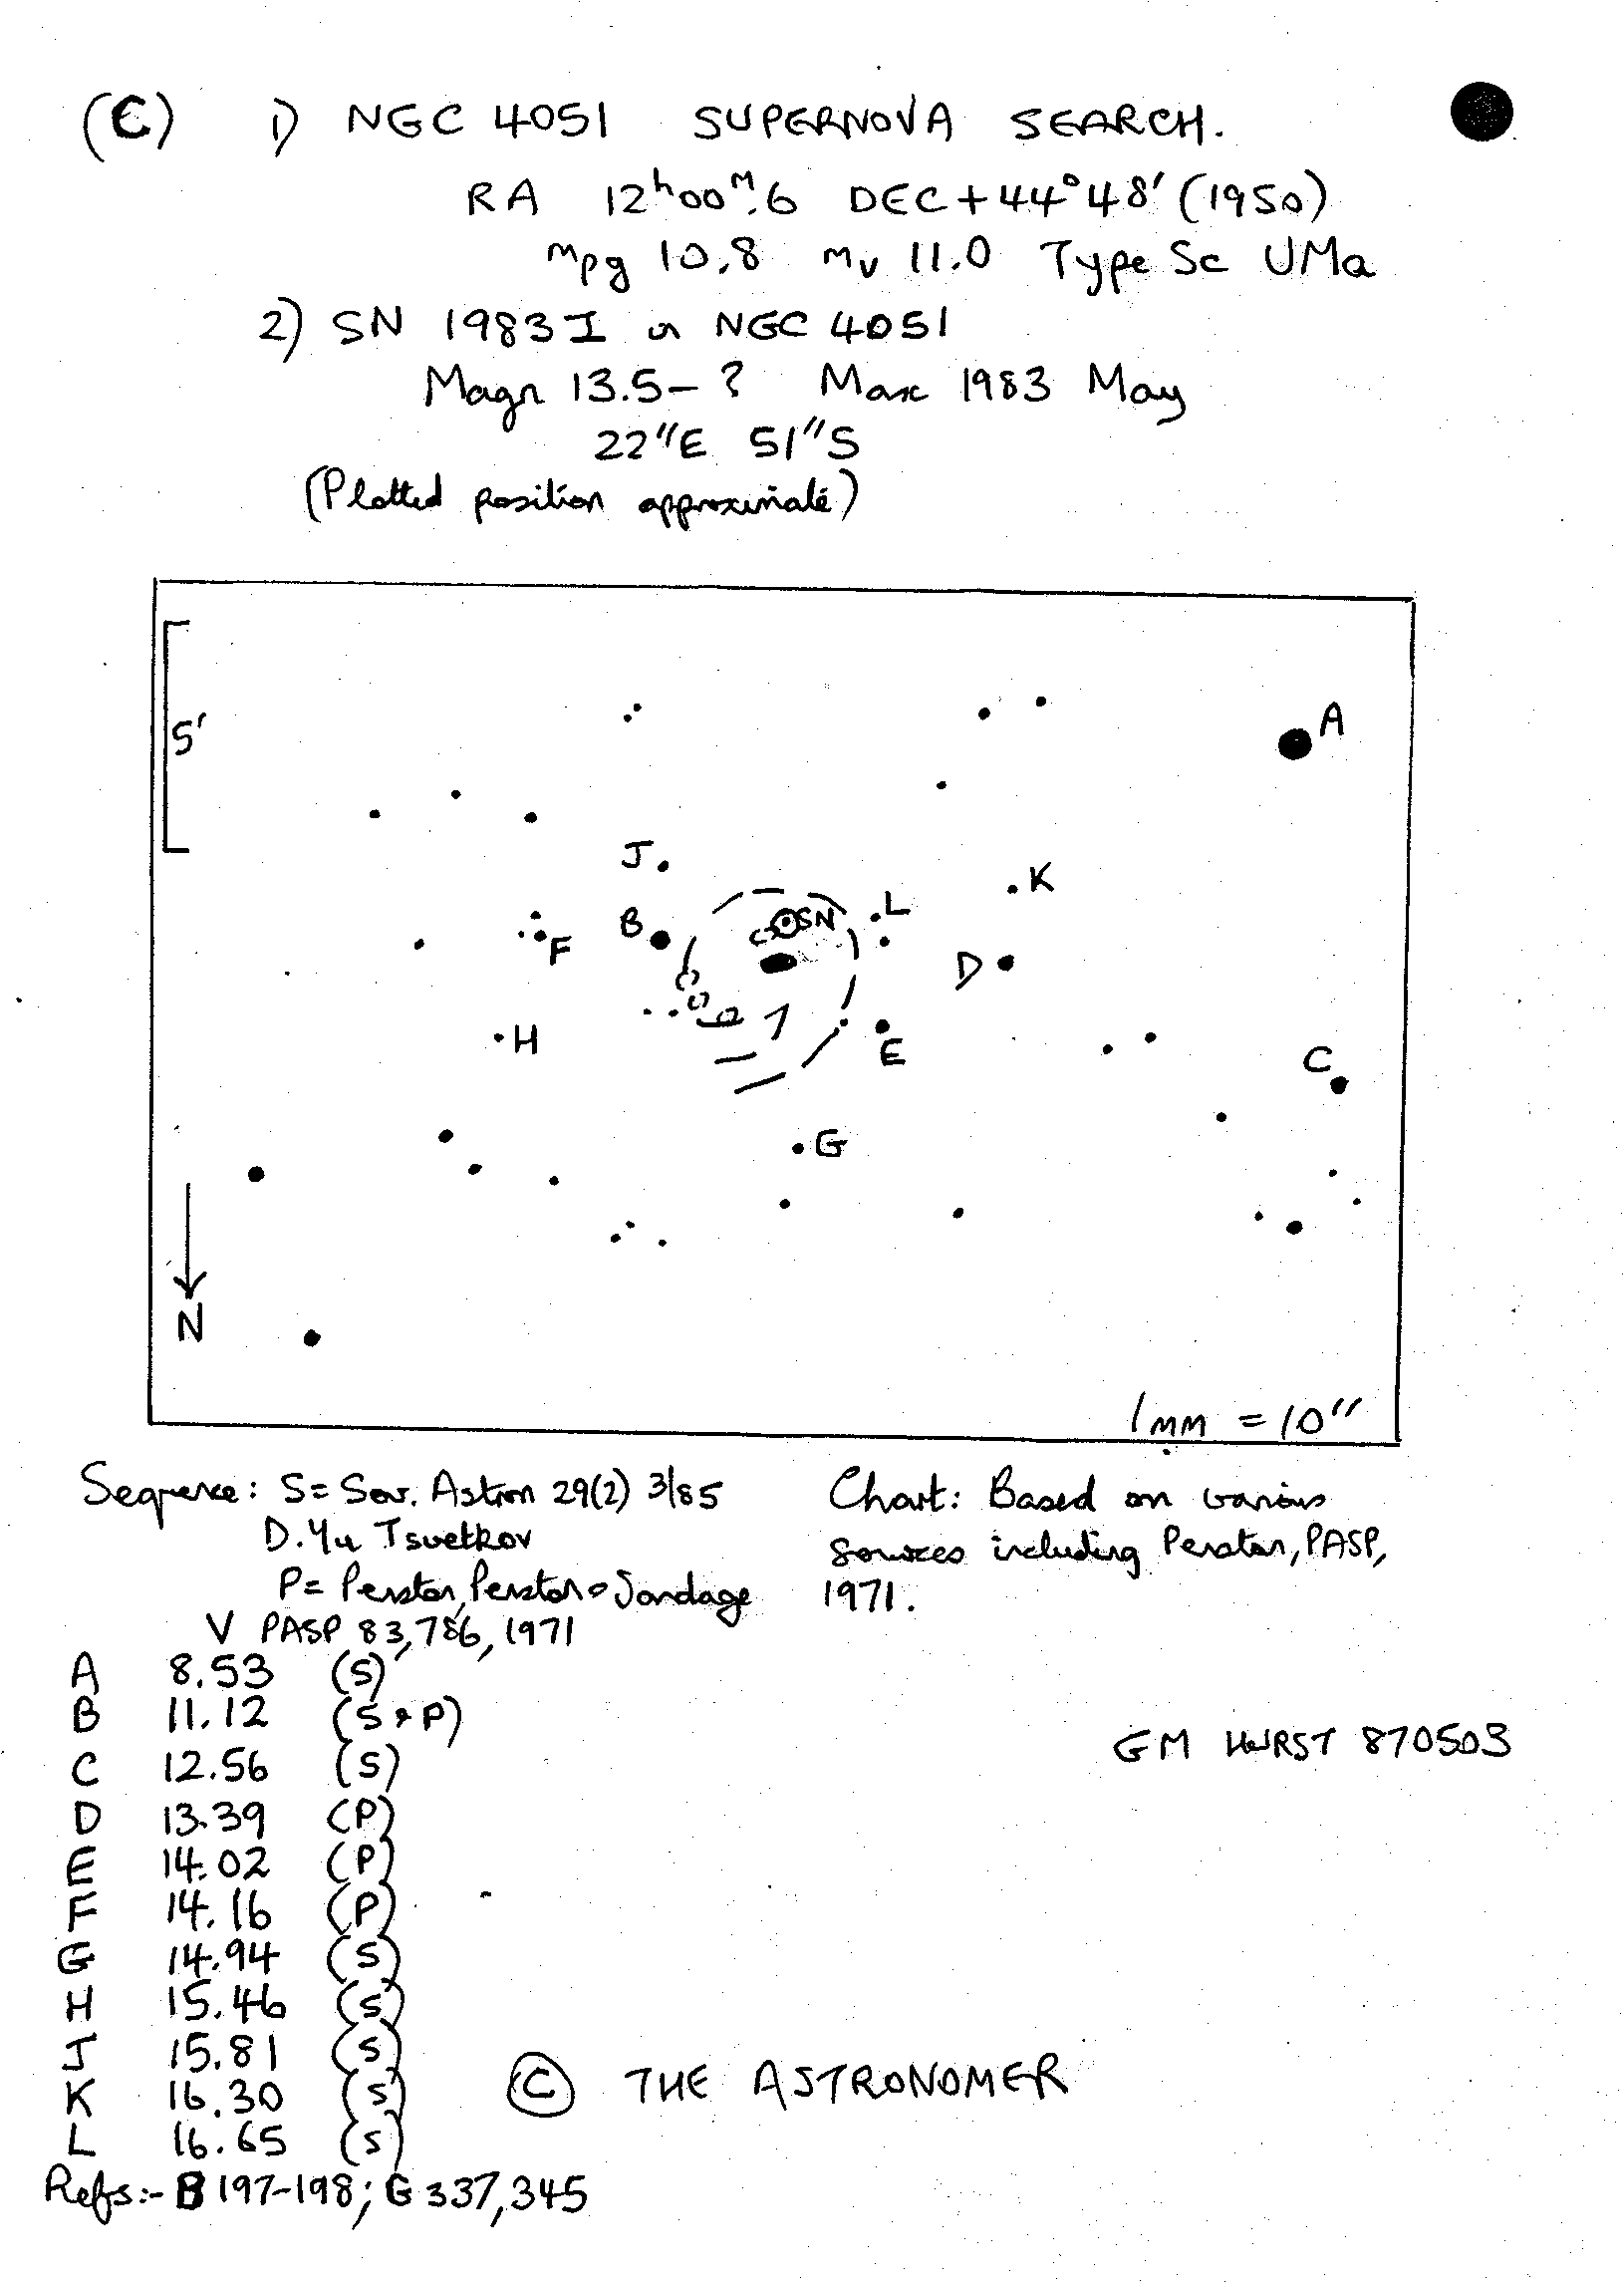 (C) 1) NGC 4051 SUPERNOVA SEARCH.
RA 12h00m.6 DEC+44°48′(1950)
mpg 10.8 mv 11.0 Type Sc UMa
2) SN 1983I in NGC 4051
Magn 13.5-? Max 1983 May
22″E 51″S
(Plotted position approximate)
A
5′
J
K
L
B
SN
F
D
H
E
C
G
N
1mm = 10″
Sequence: S= Sov. Astron 29(2) 3/85
D.Yu Tsvetkov
P= Penston, Penston & Sandage
V PASP 83,786,1971
Chart: Based on various
sources including Penston, PASP,
1971.
A 8.53 (S)
B 11.12 (S & P)
C 12.56 (S)
D 13.39 (P)
E 14.02 (P)
F 14.16 (P)
G 14.94 (S)
H 15.46 (S)
J 15.81 (S)
K 16.30 (S)
L 16.65 (S)
GM HURST 870503
© THE ASTRONOMER
Refs:- B 197-198; G 337,345